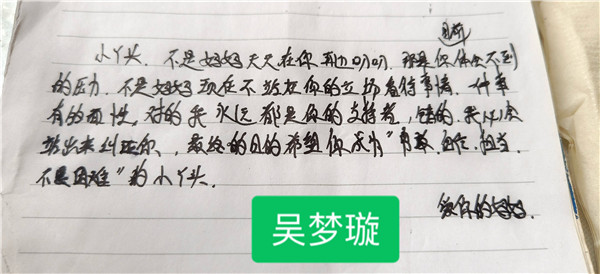 目前
小丫头，不是妈妈天天在你耳边叨叨，那是你体会不到
的压力，不是妈妈现在不站在你的立场看待事情，什事
有的两性，对的我永远都是你的支持者，错的，我必须
站出来纠正你，最终的目的希望你成为"勇敢、自信、担当、
不畏困难"的小丫头。
爱你的妈妈。
吴梦璇